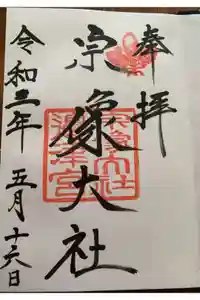 奉拝
宗像大社
宗像大社
邊津宮
令和三年
五月十六日